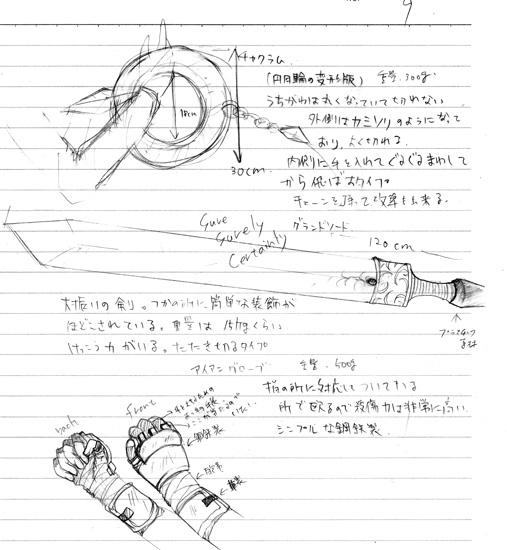 9
チャクラム
(円月輪の変形版) 重量.300g.
うちがわは丸くなっていて切れない
外側はカミソリのようになって
おり、よく切れる.
内側に手を入れてぐるぐるまわして
から飛ばすタイプ
チェーンを
18cm
30cm.
Sure
Surely
Certainly
グランドソード
120cm
大振りの剣。つかの所に簡単な装飾が
ほどこされている。重量は 15kgくらい
けっこう力がいる。たたき切るタイプ
アイアングローブ 重量.500g
所で殴るので殺傷力は非常に高い.
シンプルな鋼鉄製.
back
front